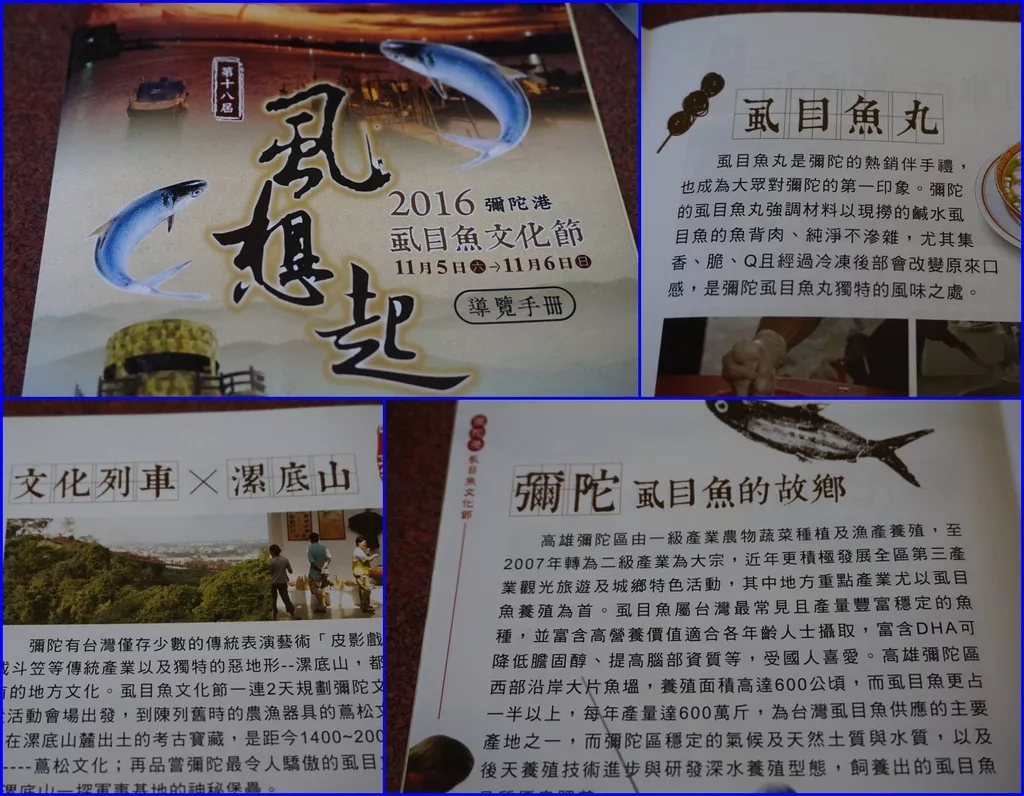 第十八屆
虱想起
2016 彌陀港
虱目魚文化節
11月5日㊅→11月6日㊐
導覽手冊
虱目魚丸
虱目魚丸是彌陀的熱銷伴手禮，
也成為大眾對彌陀的第一印象。彌陀
的虱目魚丸強調材料以現撈的鹹水虱
目魚的魚背肉、純淨不滲雜，尤其集
香、脆、Q且經過冷凍後部會改變原來口
感，是彌陀虱目魚丸獨特的風味之處。
文化列車×漯底山
彌陀有台灣僅存少數的傳統表演藝術「皮影戲
或斗笠等傳統產業以及獨特的惡地形--漯底山，都
有的地方文化。虱目魚文化節一連2天規劃彌陀文
活動會場出發，到陳列舊時的農漁器具的蔦松文
在漯底山麓出土的考古寶藏，是距今1400~200
----蔦松文化；再品嘗彌陀最令人驕傲的虱目
漯底山一探軍事基地的神秘堡壘。
彌陀港
虱目魚文化節
彌陀 虱目魚的故鄉
高雄彌陀區由一級產業農物蔬菜種植及漁產養殖，至
2007年轉為二級產業為大宗，近年更積極發展全區第三產
業觀光旅遊及城鄉特色活動，其中地方重點產業尤以虱目
魚養殖為首。虱目魚屬台灣最常見且產量豐富穩定的魚
種，並富含高營養價值適合各年齡人士攝取，富含DHA可
降低膽固醇、提高腦部資質等，受國人喜愛。高雄彌陀區
西部沿岸大片魚塭，養殖面積高達600公頃，而虱目魚更占
一半以上，每年產量達600萬斤，為台灣虱目魚供應的主要
產地之一，而彌陀區穩定的氣候及天然土質與水質，以及
後天養殖技術進步與研發深水養殖型態，飼養出的虱目魚